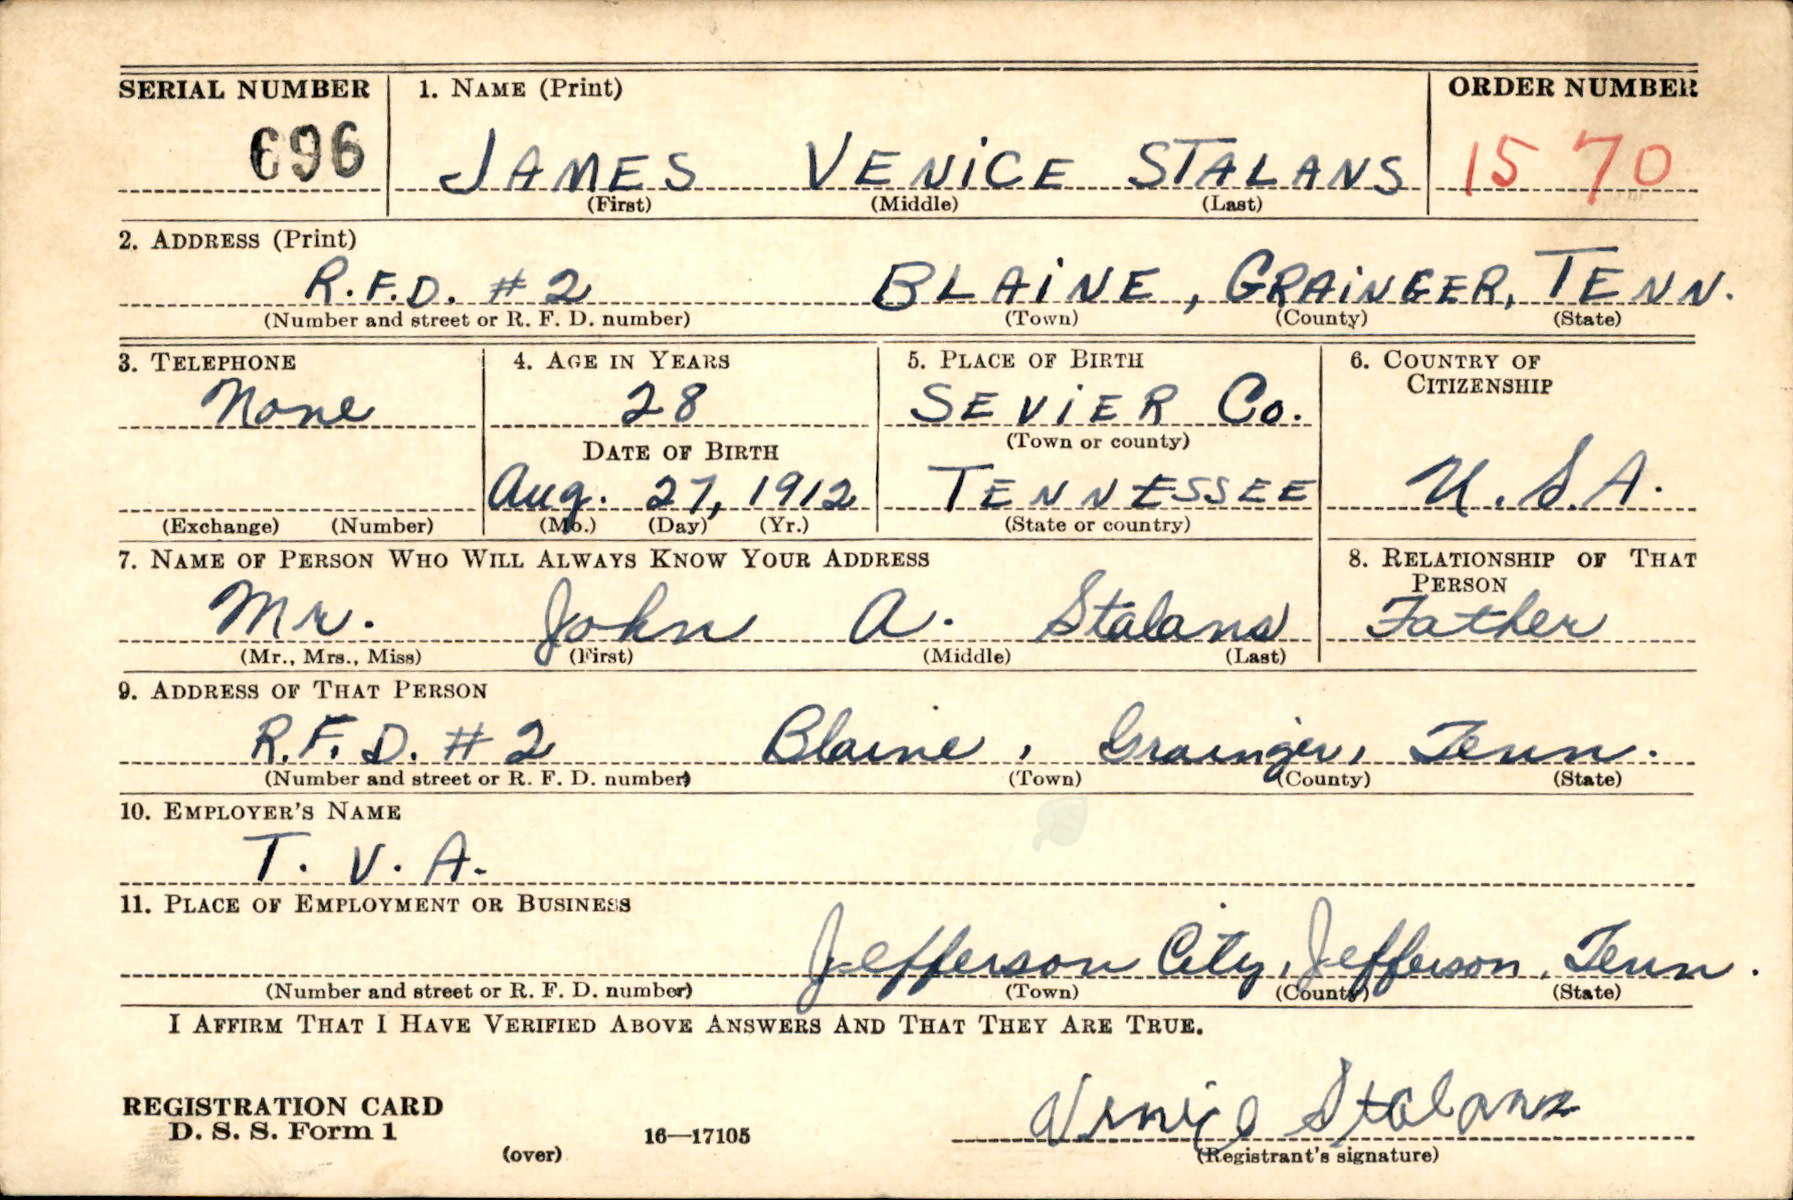 SERIAL NUMBER 1. NAME (Print) ORDER NUMBER
696 JAMES VENICE STALANS 1570
(First) (Middle) (Last)
2. ADDRESS (Print)
R.F.D. #2 BLAINE, GRAINGER, TENN.
(Number and street or R. F. D. number) (Town) (County) (State)
3. TELEPHONE 4. AGE IN YEARS 5. PLACE OF BIRTH 6. COUNTRY OF
CITIZENSHIP
None 28 SEVIER Co.
DATE OF BIRTH (Town or county)
Aug. 27, 1912 TENNESSEE U.S.A.
(Exchange) (Number) (Mo.) (Day) (Yr.) (State or country)
7. NAME OF PERSON WHO WILL ALWAYS KNOW YOUR ADDRESS 8. RELATIONSHIP OF THAT
PERSON
Mr. John A. Stalans Father
(Mr., Mrs., Miss) (First) (Middle) (Last)
9. ADDRESS OF THAT PERSON
R.F.D. #2 Blaine, Grainger, Tenn.
(Number and street or R. F. D. number) (Town) (County) (State)
10. EMPLOYER'S NAME
T. V. A.
11. PLACE OF EMPLOYMENT OR BUSINESS
Jefferson City, Jefferson, Tenn.
(Number and street or R. F. D. number) (Town) (County) (State)
I AFFIRM THAT I HAVE VERIFIED ABOVE ANSWERS AND THAT THEY ARE TRUE.
Venice Stalans
REGISTRATION CARD
D. S. S. Form 1 16—17105
(over) (Registrant's signature)